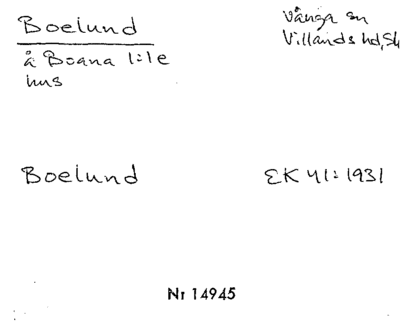 Boelund
Vånga sn
Villands hd, Sk
å Boana 1:1 e
hus
Boelund
EK 41:1931
Nr 14945